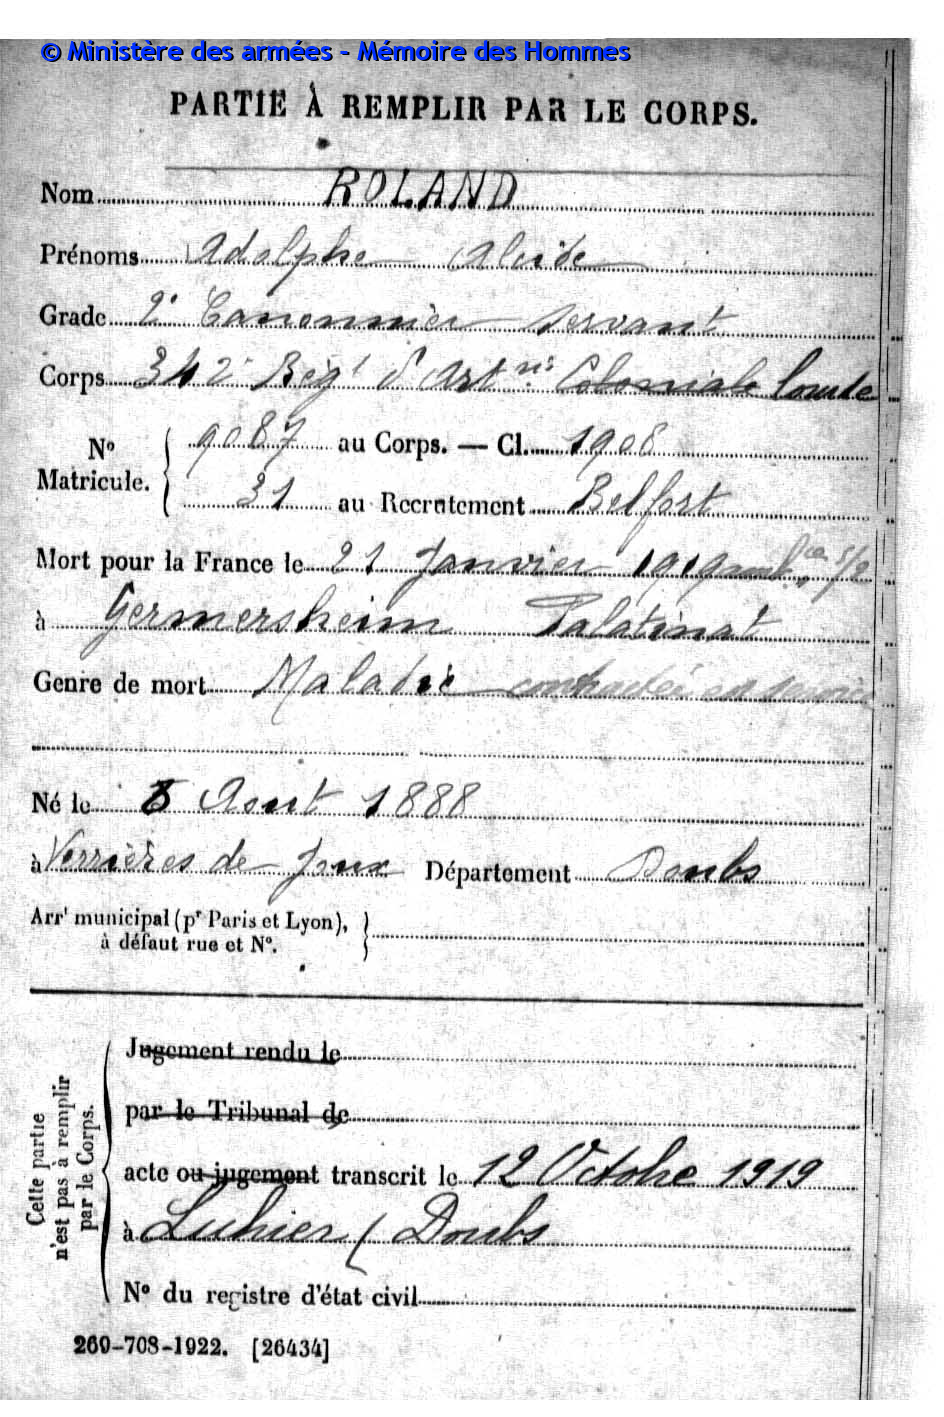 © Ministère des armées - Mémoire des Hommes
PARTIE À REMPLIR PAR LE CORPS.
Nom ROLAND
Prénoms Adolphe Alcide
Grade 2e Canonnier servant
Corps 342e Régt d'Artrie Coloniale lourde
No Matricule. 9087 au Corps. — Cl. 1908
31 au Recrutement Belfort
Mort pour la France le 21 Janvier 1919 ambce 5/2
à Germersheim Palatinat
Genre de mort Maladie contractée en service
Né le 8 Aout 1888
à Verrières de Joux Département Doubs
Arrt municipal (pr Paris et Lyon),
à défaut rue et No.
Cette partie n'est pas à remplir par le Corps.
Jugement rendu le
par le Tribunal de
acte ou jugement transcrit le 12 Octobre 1919
à Luhier (Doubs
No du registre d'état civil
269-708-1922. [26434]